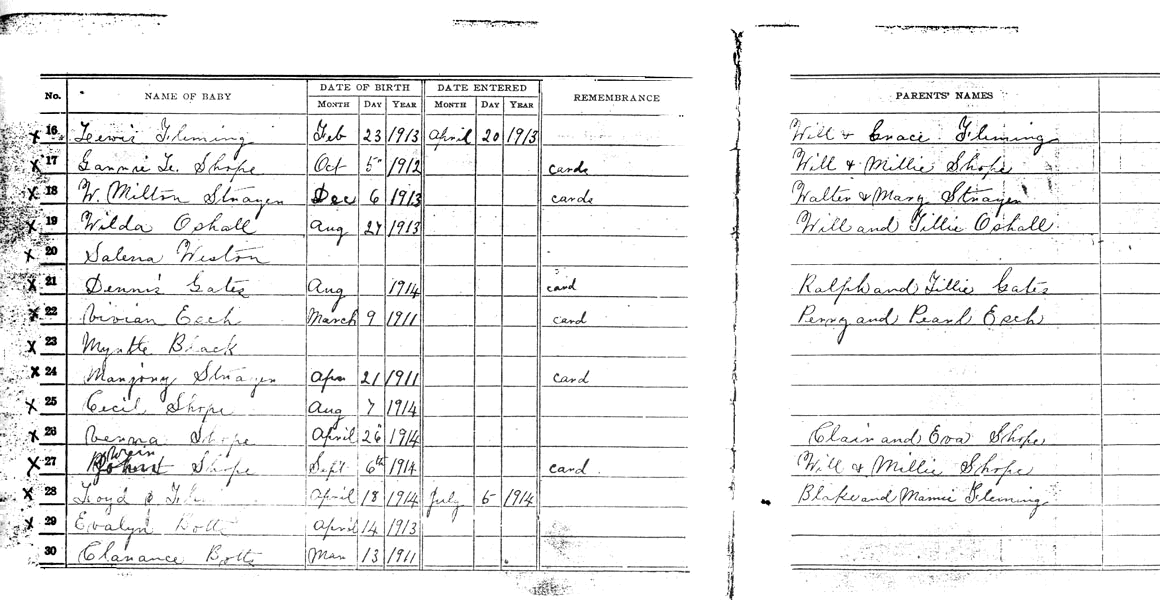 DATE OF BIRTH DATE ENTERED
No. NAME OF BABY MONTH DAY YEAR MONTH DAY YEAR REMEMBRANCE PARENTS' NAMES
x 16 Lewis Fleming Feb 23 1913 April 20 1913 Will & Grace Fleming
x 17 Shope Oct 5 1912 cards Will & Millie Shope
x 18 W. Milton Strayer Dec 6 1913 cards Walter & Mary Strayer
x 19 Wilda Oshall Aug 27 1913 Will and Tillie Oshall
x 20 Salena Weston
x 21 Dennis Gates Aug 1914 card Ralph and Tillie Gates
x 22 Vivian Esch March 9 1911 card Perry and Pearl Esch
x 23 Myrtle Black
x 24 Marjory Strayer Apr 21 1911 card
x 25 Cecil Shope Aug 7 1914
x 26 Verna Shope April 26 1914 Clair and Eva Shope
x 27 Shope Sept 6th 1914 card Will & Millie Shope
x 28 Loyd April 18 1914 July 5 1914 Blake and Mamie Fleming
x 29 Evalyn Botts April 14 1913
30 Clarance Botts Mar 13 1911